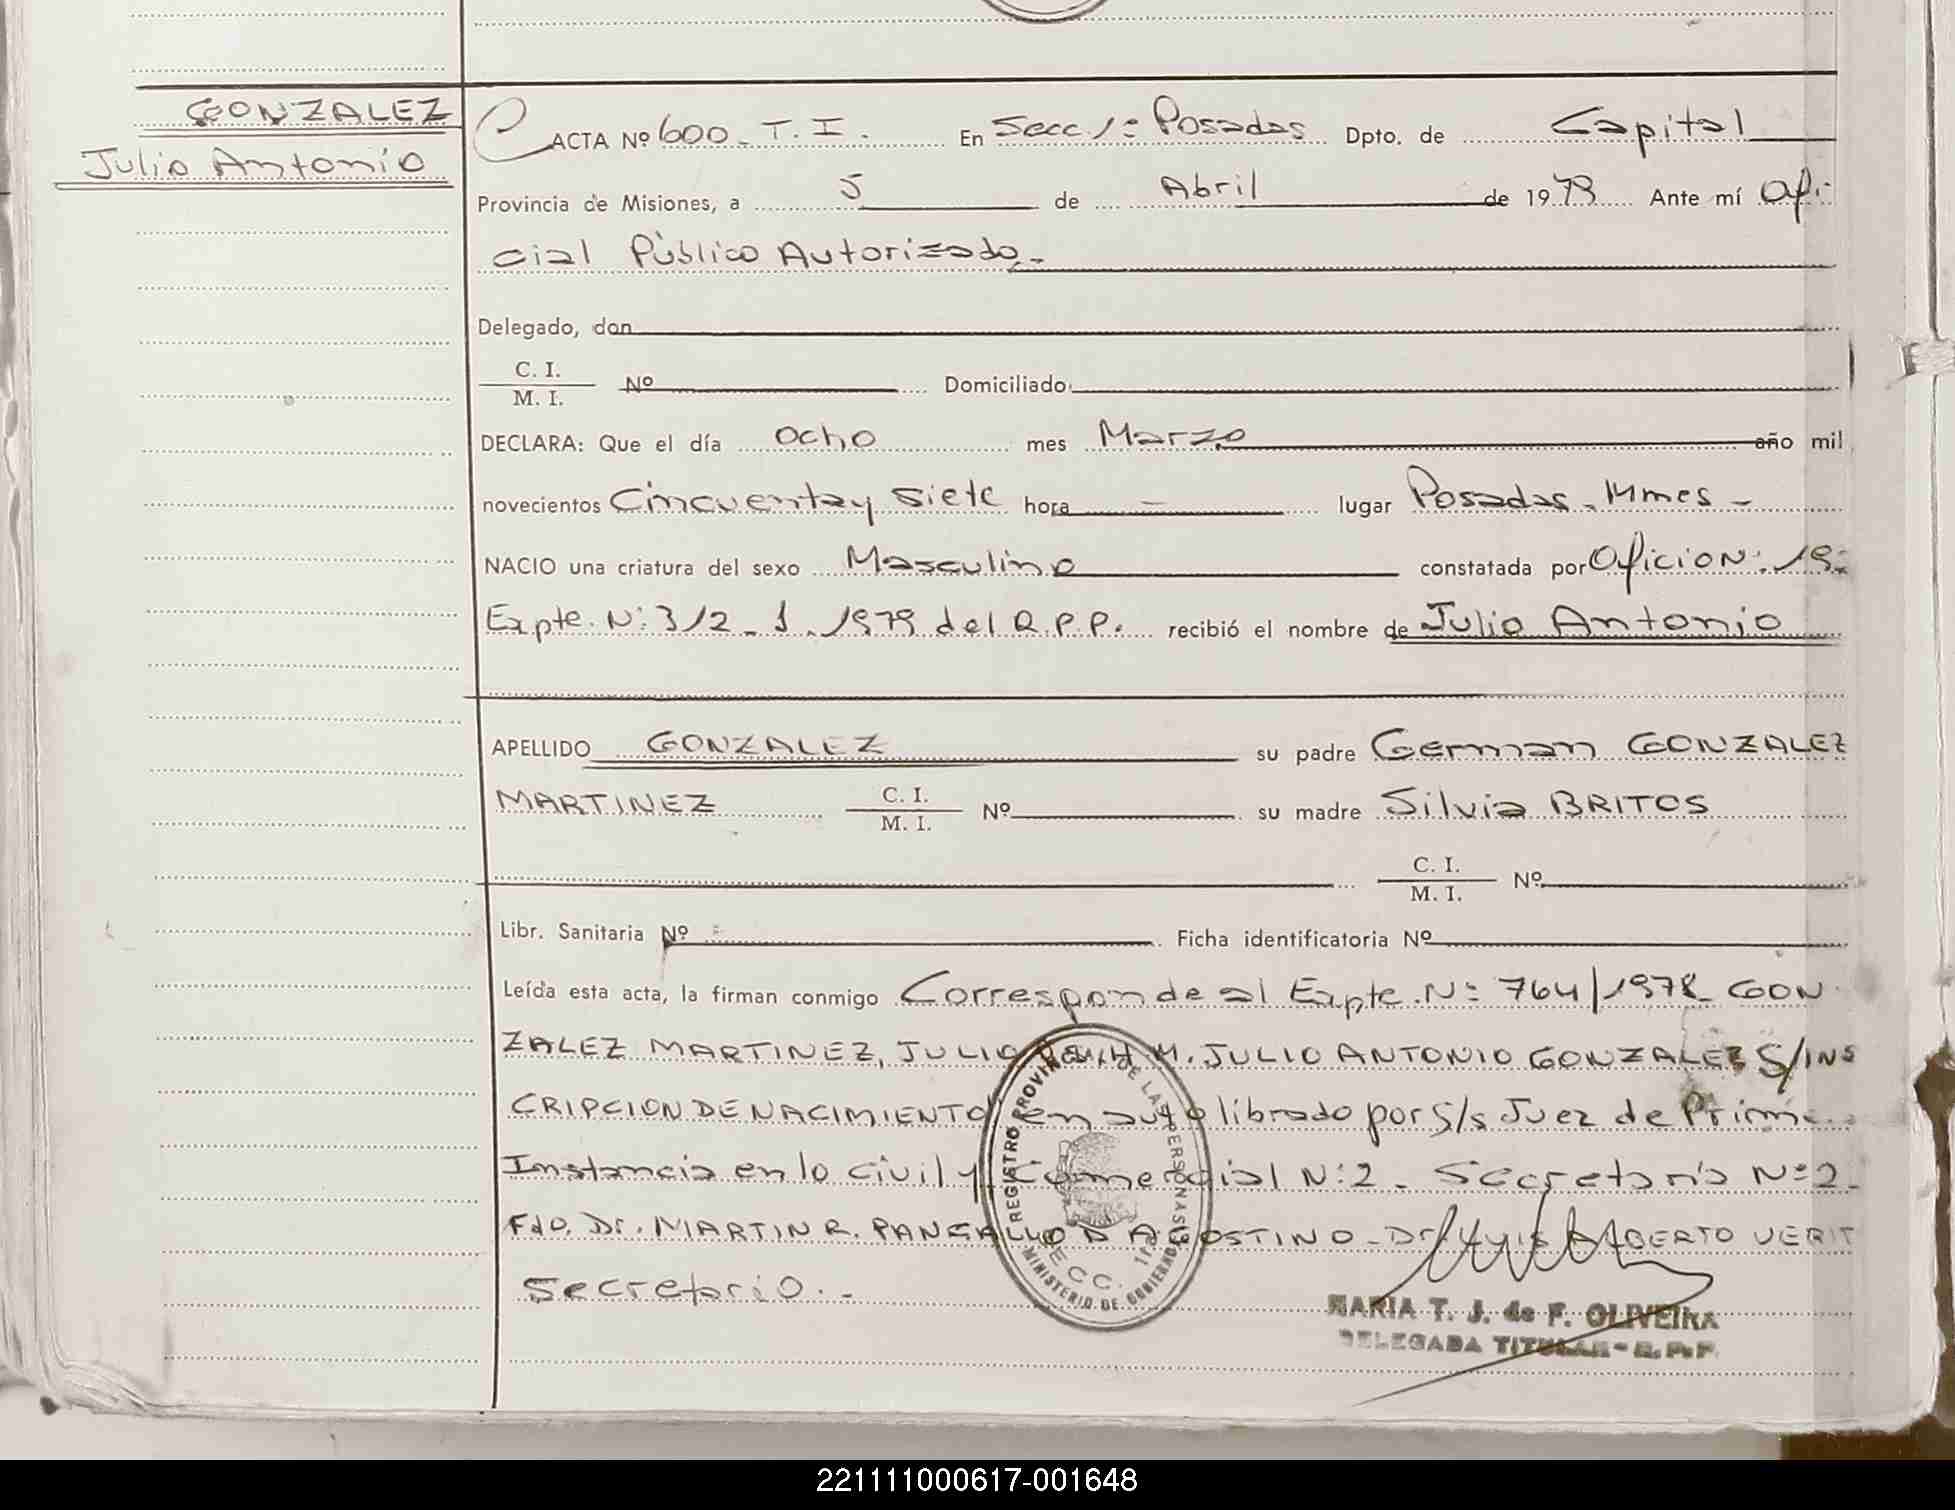 GONZALEZ
Julio Antonio
ACTA Nº 600 - T. I. En Secc. 1: Posadas Dpto. de Capital
Provincia de Misiones, a 5 de Abril de 1979 Ante mí Ofi-
cial Público Autorizado.-
Delegado, don
C. I.
M. I. Nº Domiciliado
DECLARA: Que el día ocho mes Marzo año mil
novecientos Cincuenta y Siete hora - lugar Posadas - Mnes -
NACIO una criatura del sexo Masculino constatada por Oficio N: 19-
Expte. N: 312 - J - 1979 del R.P.P. recibió el nombre de Julio Antonio
APELLIDO GONZALEZ su padre German GONZALEZ
MARTINEZ C. I. M. I. Nº su madre Silvia BRITOS
C. I. M. I. Nº
Libr. Sanitaria Nº Ficha identificatoria Nº
Leída esta acta, la firman conmigo Corresponde al Expte. N: 764/1978 - GON
ZALEZ MARTINEZ, JULIO M. JULIO ANTONIO GONZALEZ S/INS
CRIPCION DE NACIMIENTO en auto librado por S/s Juez de Prime
Instancia en lo Civil y Comercial N: 2 - Secretaría N: 2 -
Fdo. Dr. MARTIN R. PANGALLO D AGOSTINO - Dr. LUIS ALBERTO VERIT
Secretario. -
REGISTRO PROVINCIAL DE LAS PERSONAS
SECC. 1ra
MINISTERIO DE GOBIERNO
MARIA T. J. de F. OLIVEIRA
DELEGADA TITULAR - R.P.P.
221111000617-001648